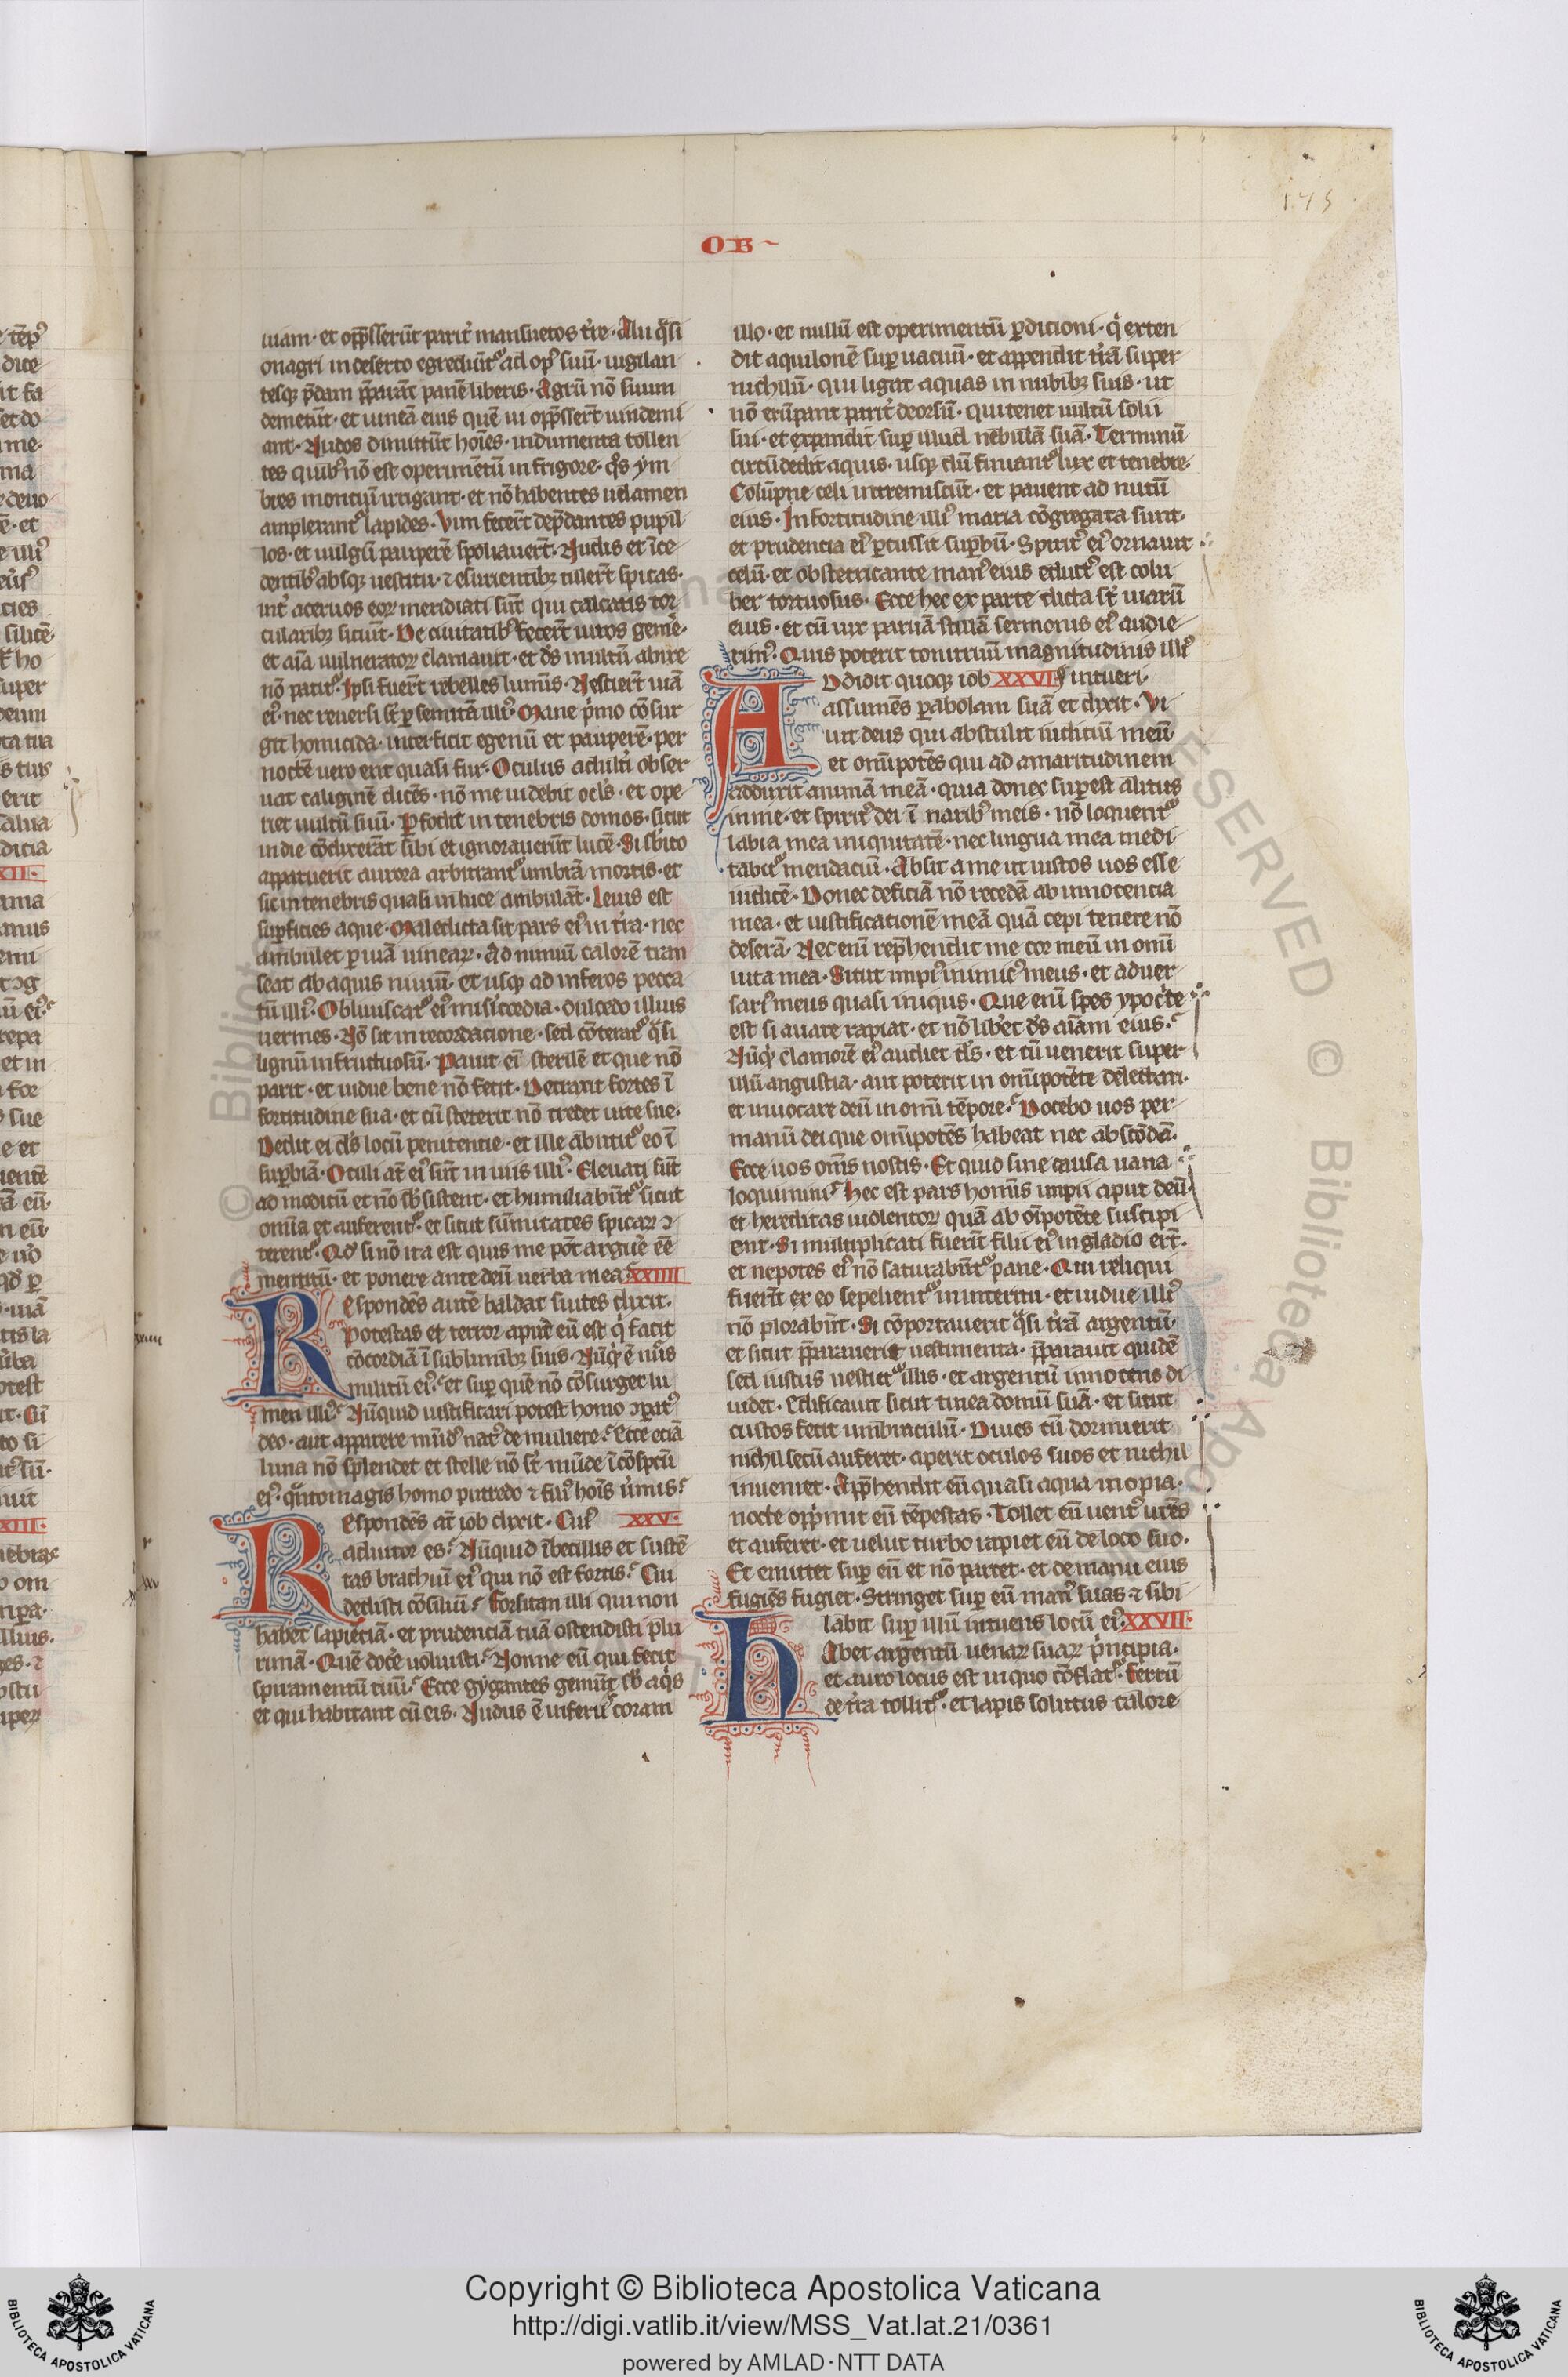 175
OB
uiam · et opp̄sserūt parit᷑ mansuetos t᷑re · Alii q̄si
onagri in deserto egrediūt᷑ ad op᷒ suū · uigilan
tesq; p̄dam p̄parāt panē liberis · Agrū nō suum
demetūt · et uineā eius quē ui opp̄sserūt uindemi
ant · Nudos dimittūt hoīes · indumenta tollen
tes quib᷒ nō est operimētū in frigore · q̄s ym
bres montiū irrigant · et nō habentes uelamen
amplexant᷑ lapides · Vim fecert̄ dep̄dantes pupil
los · et uulgū pauperē spoliauert̄ · Nudis et īce
dentib᷒ absq; uestitu · ⁊ esurientibꝫ tulert̄ spicas ·
int᷑ aceruos eoꝝ meridiati sūt qui calcatis tor
cularibꝫ sitiūt · De ciuitatib᷒ fecert̄ uiros gemē ·
et aīa uulneratoꝝ clamauit · et ds̄ inultū abire
nō patit᷑ · Ipsi fuert̄ rebelles lumīs · Nescierūt uiā
ei᷒ nec reuersi sūt ꝑ semitā illi᷒ · Mane p̄mo cōsur
git homicida · interficit egenū et pauperē · per
noctē uero erit quasi fur · Oculus adulti obser
uat caliginē dicēs · nō me uidebit ocl᷒s · et ope
riet uultū suū · Pfodit in tenebris domos · sicut
in die cōdixerāt sibi et ignorauerūt lucē · Si sb̄ito
apparuerit aurora arbitrant᷑ umbrā mortis · et
sic in tenebris quasi in luce ambulāt · Leuis est
suꝑficies aque · Maledicta sit pars ei᷒ in t᷑ra · nec
ambulet ꝑ uiā uineaꝝ · Ad nimiū calorē tran
seat ab aquis niuiū · et usq; ad inferos pecca
tū illi᷒ · Obliuiscat᷑ ei᷒ misīcordia · dulcedo illius
uermes · Nō sit in recordacione · sed cōterat᷑ q̄si
lignū infructuosū · Pauit ei᷒ sterilē et que nō
parit · et uidue bene nō fecit · Detraxit fortes ī
fortitudine sua · et cū steterit nō credet uite sue ·
Dedit ei ds̄ locū penitentie · et ille abutit᷑ eo ī
suꝑbiā · Oculi at̄ ei᷒ sūt in uiis illi᷒ · Eleuati sūt
ad modicū et nō sb̄sistent · et humiliabūt᷑ sicut
omīa et auferent᷑ · et sicut sūmitates spicaꝝ ꝯ
terent᷑ · Qd̄ si nō ita est quis me pōt arguē ēē
mentitū · et ponere ante deū uerba mea · XXIIII
Respondēs autē baldat suites dixit ·
Potestas et terror apud eū est q̄ facit
cōcordiā ī sublimibꝫ suis · Nūq̄d ē nūs
militū ei᷒ · et sup quē nō cōsurget lu
men illi᷒ · Nūquid iustificari potest homo ꝯpat᷒
deo · aut apparere mūd᷒ nat᷒ de muliere · Ecce eciā
luna nō splendet et stelle nō sūt mūde ī cōspcū
ei᷒ · q̄ntomagis homo putredo ⁊ fili᷒ hoīs ūmis ·
Respondēs at̄ iob dixit · Cui᷒ XXV ·
adiutor es · Nūquid ībecillis et sustē
tas brachiū ei᷒ qui nō est fortis · Cui
dedisti cōsiliū · forsitan illi qui non
habet sapiēciā · et prudenciā tuā ostendisti plu
rimā · Quē docē uoluisti · Nonne eū qui fecit
spiramentū tuū · Ecce gygantes gemūt sb̄ aq̄s
et qui habitant cū eis · Nudus ē inferu᷒ coram
illo · et nullū est operimentū ꝑdicioni · q̄ exten
dit aquilonē suꝑ uacuū · et appendit t᷑rā super
nichilū · qui ligat aquas in nubibꝫ suis · ut
nō erūpant parit᷑ deorsū · qui tenet uultū solii
sui · et expandit suꝑ illud nebulā suā · Terminū
circūdedit aquis · usq; dū finiant᷑ lux et tenebre ·
Colūpne celi intremiscūt · et pauent ad nutū
eius · In fortitudine illi᷒ maria cōgregata sunt ·
et prudencia ei᷒ ꝑcussit suꝑbū · Spirit᷒ ei᷒ ornauit
celū · et obstetricante manu eius educt᷒ est colu
ber tortuosus · Ecce hec ex parte dicta sūt uiarū
eius · et cū uix paruā stillā sermonis ei᷒ audie
rim᷒ · Quis poterit tonitruū magnitudinis illi᷒
Addidit quoq; iob XXVI intueri ·
assumēs ꝑabolam suā et dixit · Vi
uit deus qui abstulit iudiciū meū
et omīpotēs qui ad amaritudinem
adduxit animā meā · quia donec suꝑest alitus
in me · et spirit᷒ dei ī narib᷒ meis · nō loquent᷑
labia mea iniquitatē · nec lingua mea medi
tabit᷑ mendaciū · Absit a me ut iustos uos esse
iudicē · Donec deficiā nō recedā ab innocencia
mea · et iustificationē meā quā cepi tenere nō
deserā · Nec enī rep̄hendit me cor meū in omī
uita mea · Sicut impi᷒ inimic᷒ meus · et aduer
sari᷒ meus quasi iniqus · Que enī spes ypoc̄te
est si auare rapiat · et nō libet ds̄ aīam eius ·
Nūq̄d clamorē ei᷒ audiet ds̄ · et cū uenerit super
illū angustia · aut poterit in omīpotēte delectari ·
et inuocare deū in omī tēpore · Docebo uos per
manū dei que omīpotēs habeat nec abscōdā ·
Ecce uos om̄s nostis · Et quid sine causa uana
loquimini · Hec est pars homīs impii aput deū ·
et hereditas uiolentoꝝ quā ab oīpotēte suscipi
ent · Si multiplicati fuerīt filii ei᷒ in gladio ert̄ ·
et nepotes ei᷒ nō saturabūt᷑ pane · Qui reliqui
fuerīt ex eo sepelient᷑ in interitu · et uidue illi᷒
nō plorabūt · Si cōportauerit q̄si t᷑rā argentū ·
et sicut p̄parauerit uestimenta · p̄parauit quidē
sed iustus uestiet᷑ illis · et argentū innocens di
uidet · Edificauit sicut tinea domū suā · et sicut
custos fecit umbraculū · Diues cū dormierit
nichil secū auferet · aperit oculos suos et nichil
inueniet · App̄hendit eū quasi aqua inopia ·
nocte opp̄mit eū tēpestas · Tollet eū uent᷒ urēs
et auferet · et uelut turbo rapiet eū de loco suo ·
Et emittet suꝑ eū et nō parcet · et de manu eius
fugiēs fugiet · Stringet suꝑ eū man᷒ suas ⁊ sibi
labit suꝑ illū intuens locū ei᷒ · XXVII ·
Habet argentū uenaꝝ suaꝝ p̄ncipia ·
et auro locus est in quo cōflat᷑ · Ferrū
de t᷑ra tollit᷑ · et lapis solutus calore
Copyright © Biblioteca Apostolica Vaticana
http://digi.vatlib.it/view/MSS_Vat.lat.21/0361
powered by AMLAD · NTT DATA
BIBLIOTECA APOSTOLICA VATICANA
BIBLIOTECA APOSTOLICA VATICANA